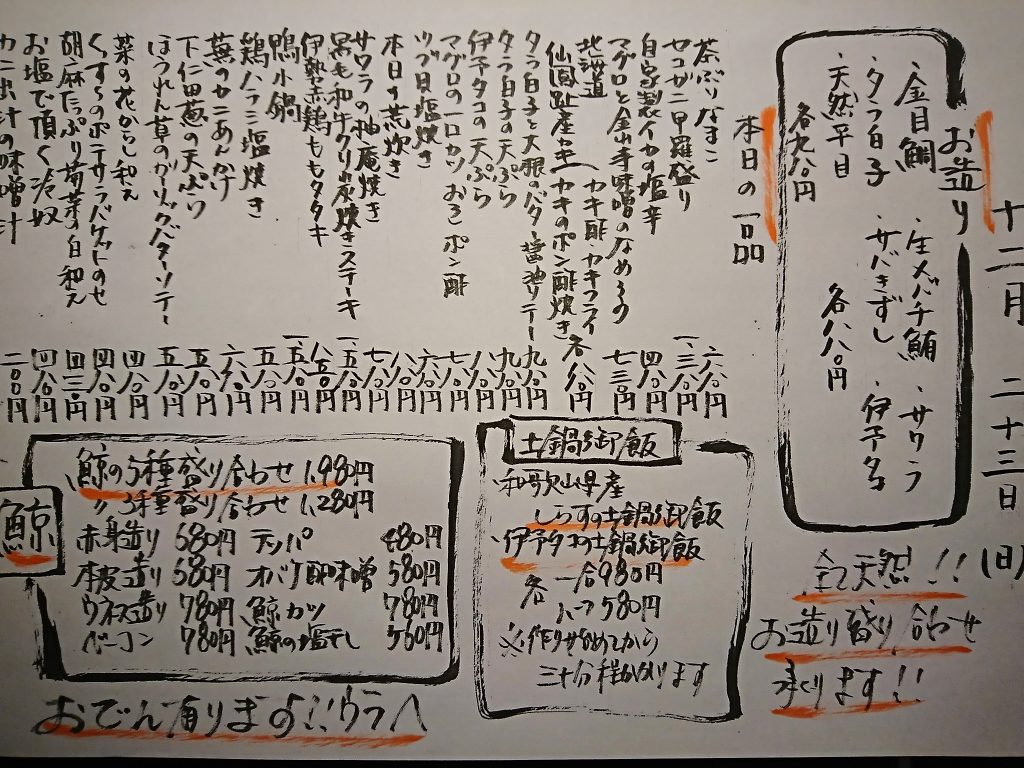 十二月 二十三日 (日)
お造り
・金目鯛 ・生メバチ鮪 ・サワラ
・タラ白子 ・サバきずし ・伊予タコ
・天然平目
各九八〇円 各八八〇円
全て天然!!
お造り盛り合わせ
承ります!!
本日の一品
茶ぶりなまこ 六八〇円
セコガニ甲羅盛り 一、三八〇円
自家製イカの塩辛 四八〇円
マグロと金山寺味噌のなめろう 七三〇円
北海道
仙鳳趾産カキ(カキ酢・カキフライ
カキのポン酢焼き 各八八〇円
タラ白子と大根のバター醤油ソテー 九八〇円
タラ白子の天ぷら 九八〇円
伊予タコの天ぷら 八八〇円
マグロの一口カツ おろしポン酢 七八〇円
ツブ貝塩焼き 六八〇円
本日の荒炊き 八八〇円
サワラの柚庵焼き 七八〇円
黒毛和牛クリの炭焼きステーキ 一、五八〇円
伊勢赤鶏ももタタキ 八五〇円
鴨小鍋 一、五八〇円
鶏ハラミ塩焼き 五八〇円
蕪のカニあんかけ 六八〇円
下仁田葱の天ぷら 五八〇円
ほうれん草のガーリックバターソテー 五八〇円
菜の花からし和え 四八〇円
くずし豆のポテサラバケットのせ 四八〇円
胡麻たっぷり菊菜の白和え 四三〇円
お塩で頂く冷奴 四八〇円
カニ出汁の味噌汁 二〇〇円
土鍋御飯
・和歌山県産
しらすの土鍋御飯
・伊予タコの土鍋御飯
各 一合980円
ハーフ580円
※作りはじめてから
三十分程かかります
鯨
鯨の5種盛り合わせ 1,980円
〃 3種盛り合わせ 1,280円
赤身造り 680円 テッパ 480円
本皮造り 680円 オバケ酢味噌 580円
ウネス造り 780円 鯨カツ 780円
ベーコン 780円 鯨の塩干し 560円
おでん有ります!!ウラへ